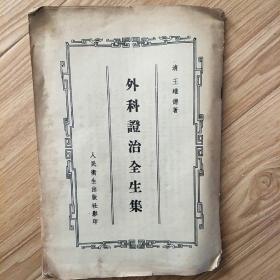 清 王維德著
外科證治全生集
人民衛生出版社影印